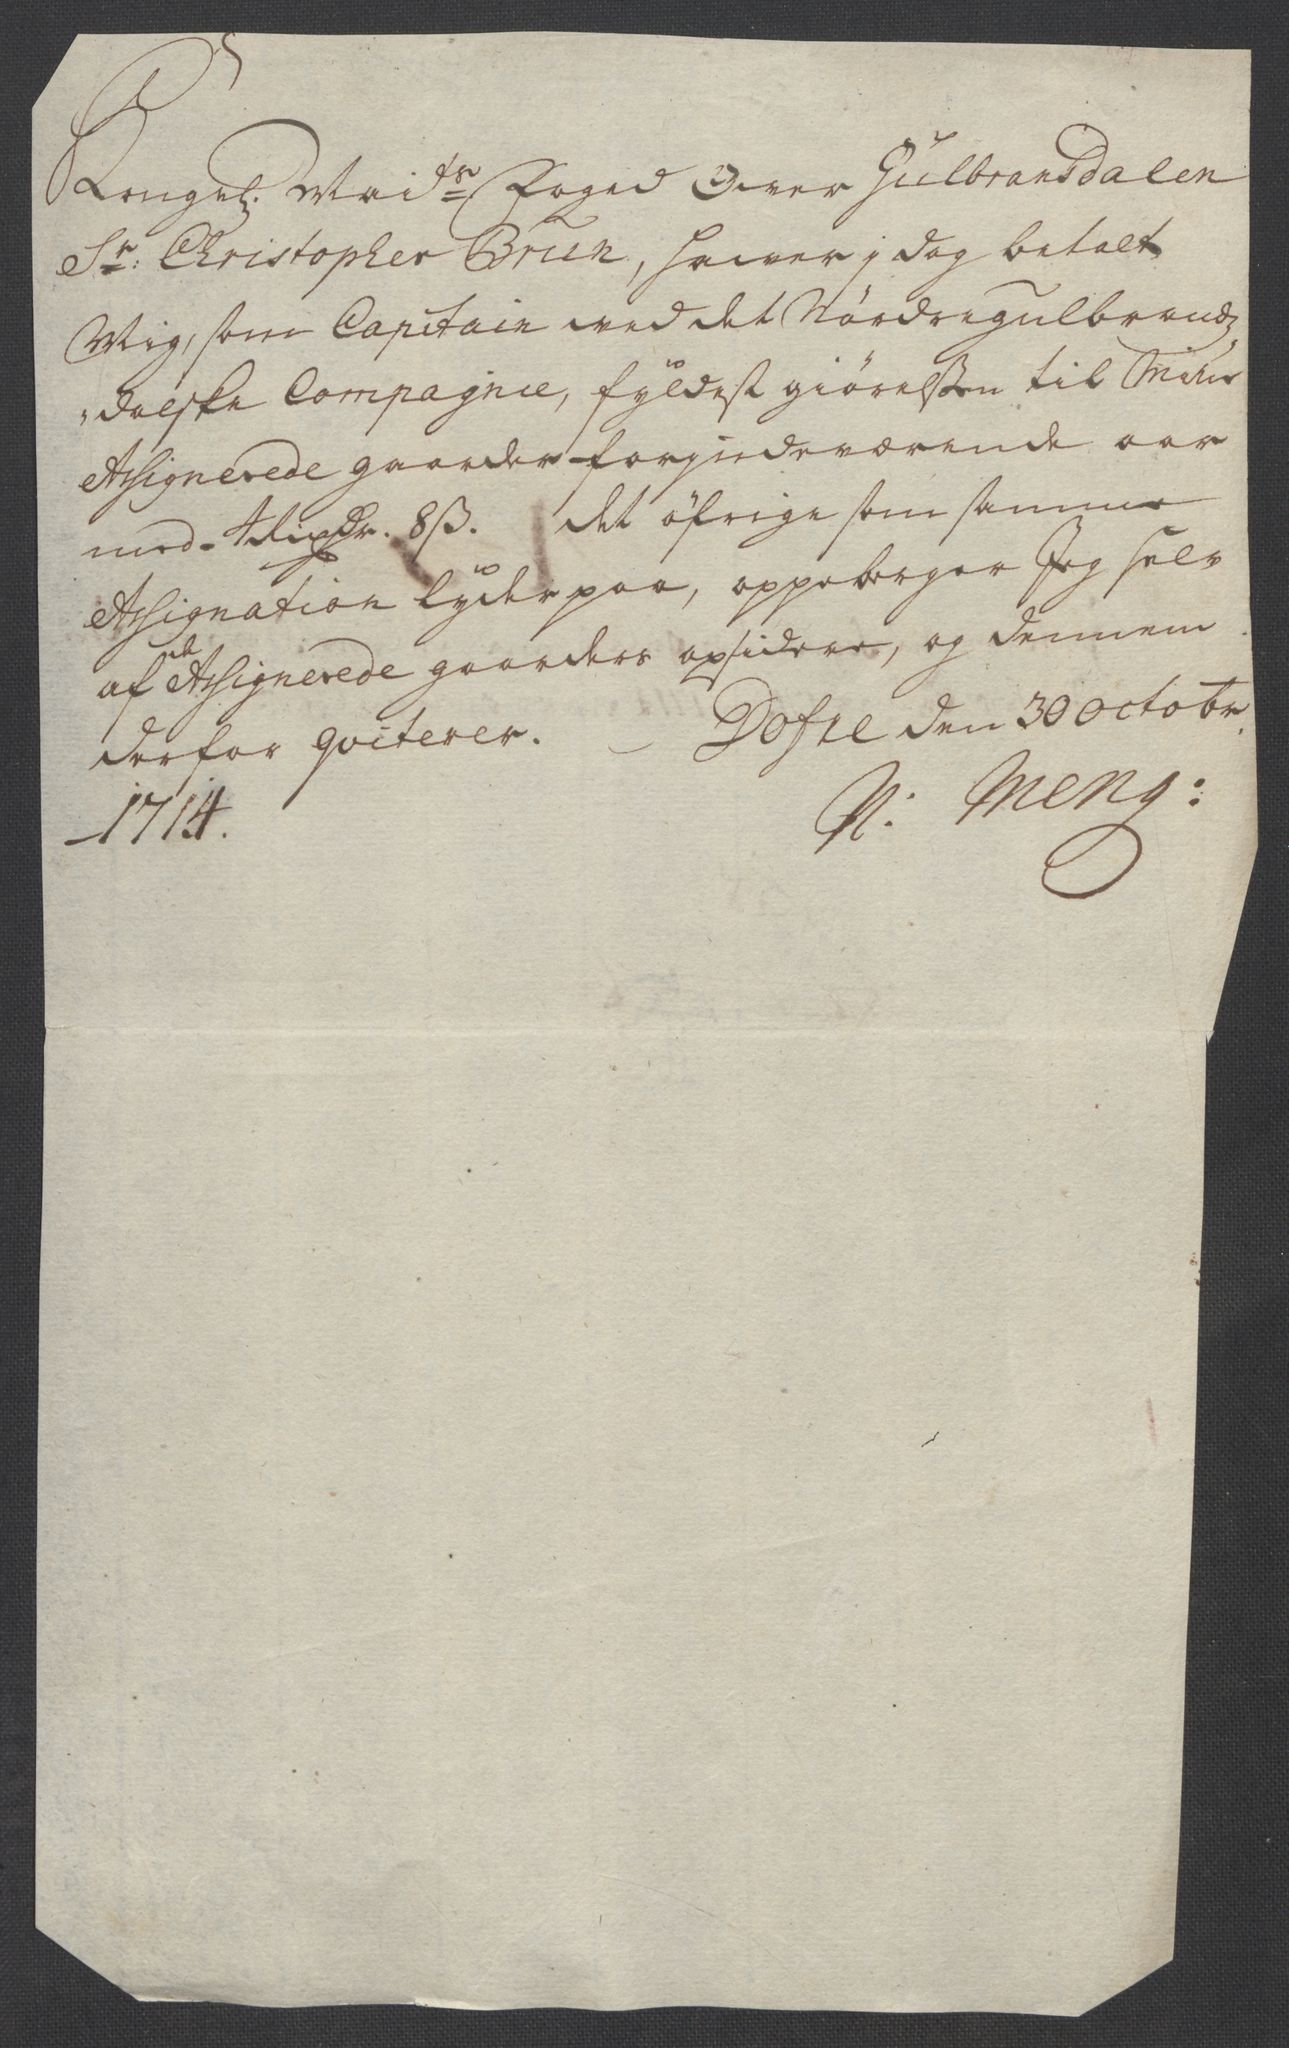 Kongel: Maids Foged Over Gulbransdalen
Sr: Christopher Brun, hawer j dag betalt
Mig, som Capitain ved det Nordregulbrands
dalske Compagnie, fyldest giørelßen til Mine
Assignerede gaarder for indeværende aar
med 4 Rixdr. 8 ß. det öfrige som samme
Assignation lyder paa, oppeberger Jeg selv
af de Assignerede gaarders opsidere, og dennem
derfor qviterer. Dofre den 30 octobr.
1714. N: Meng: